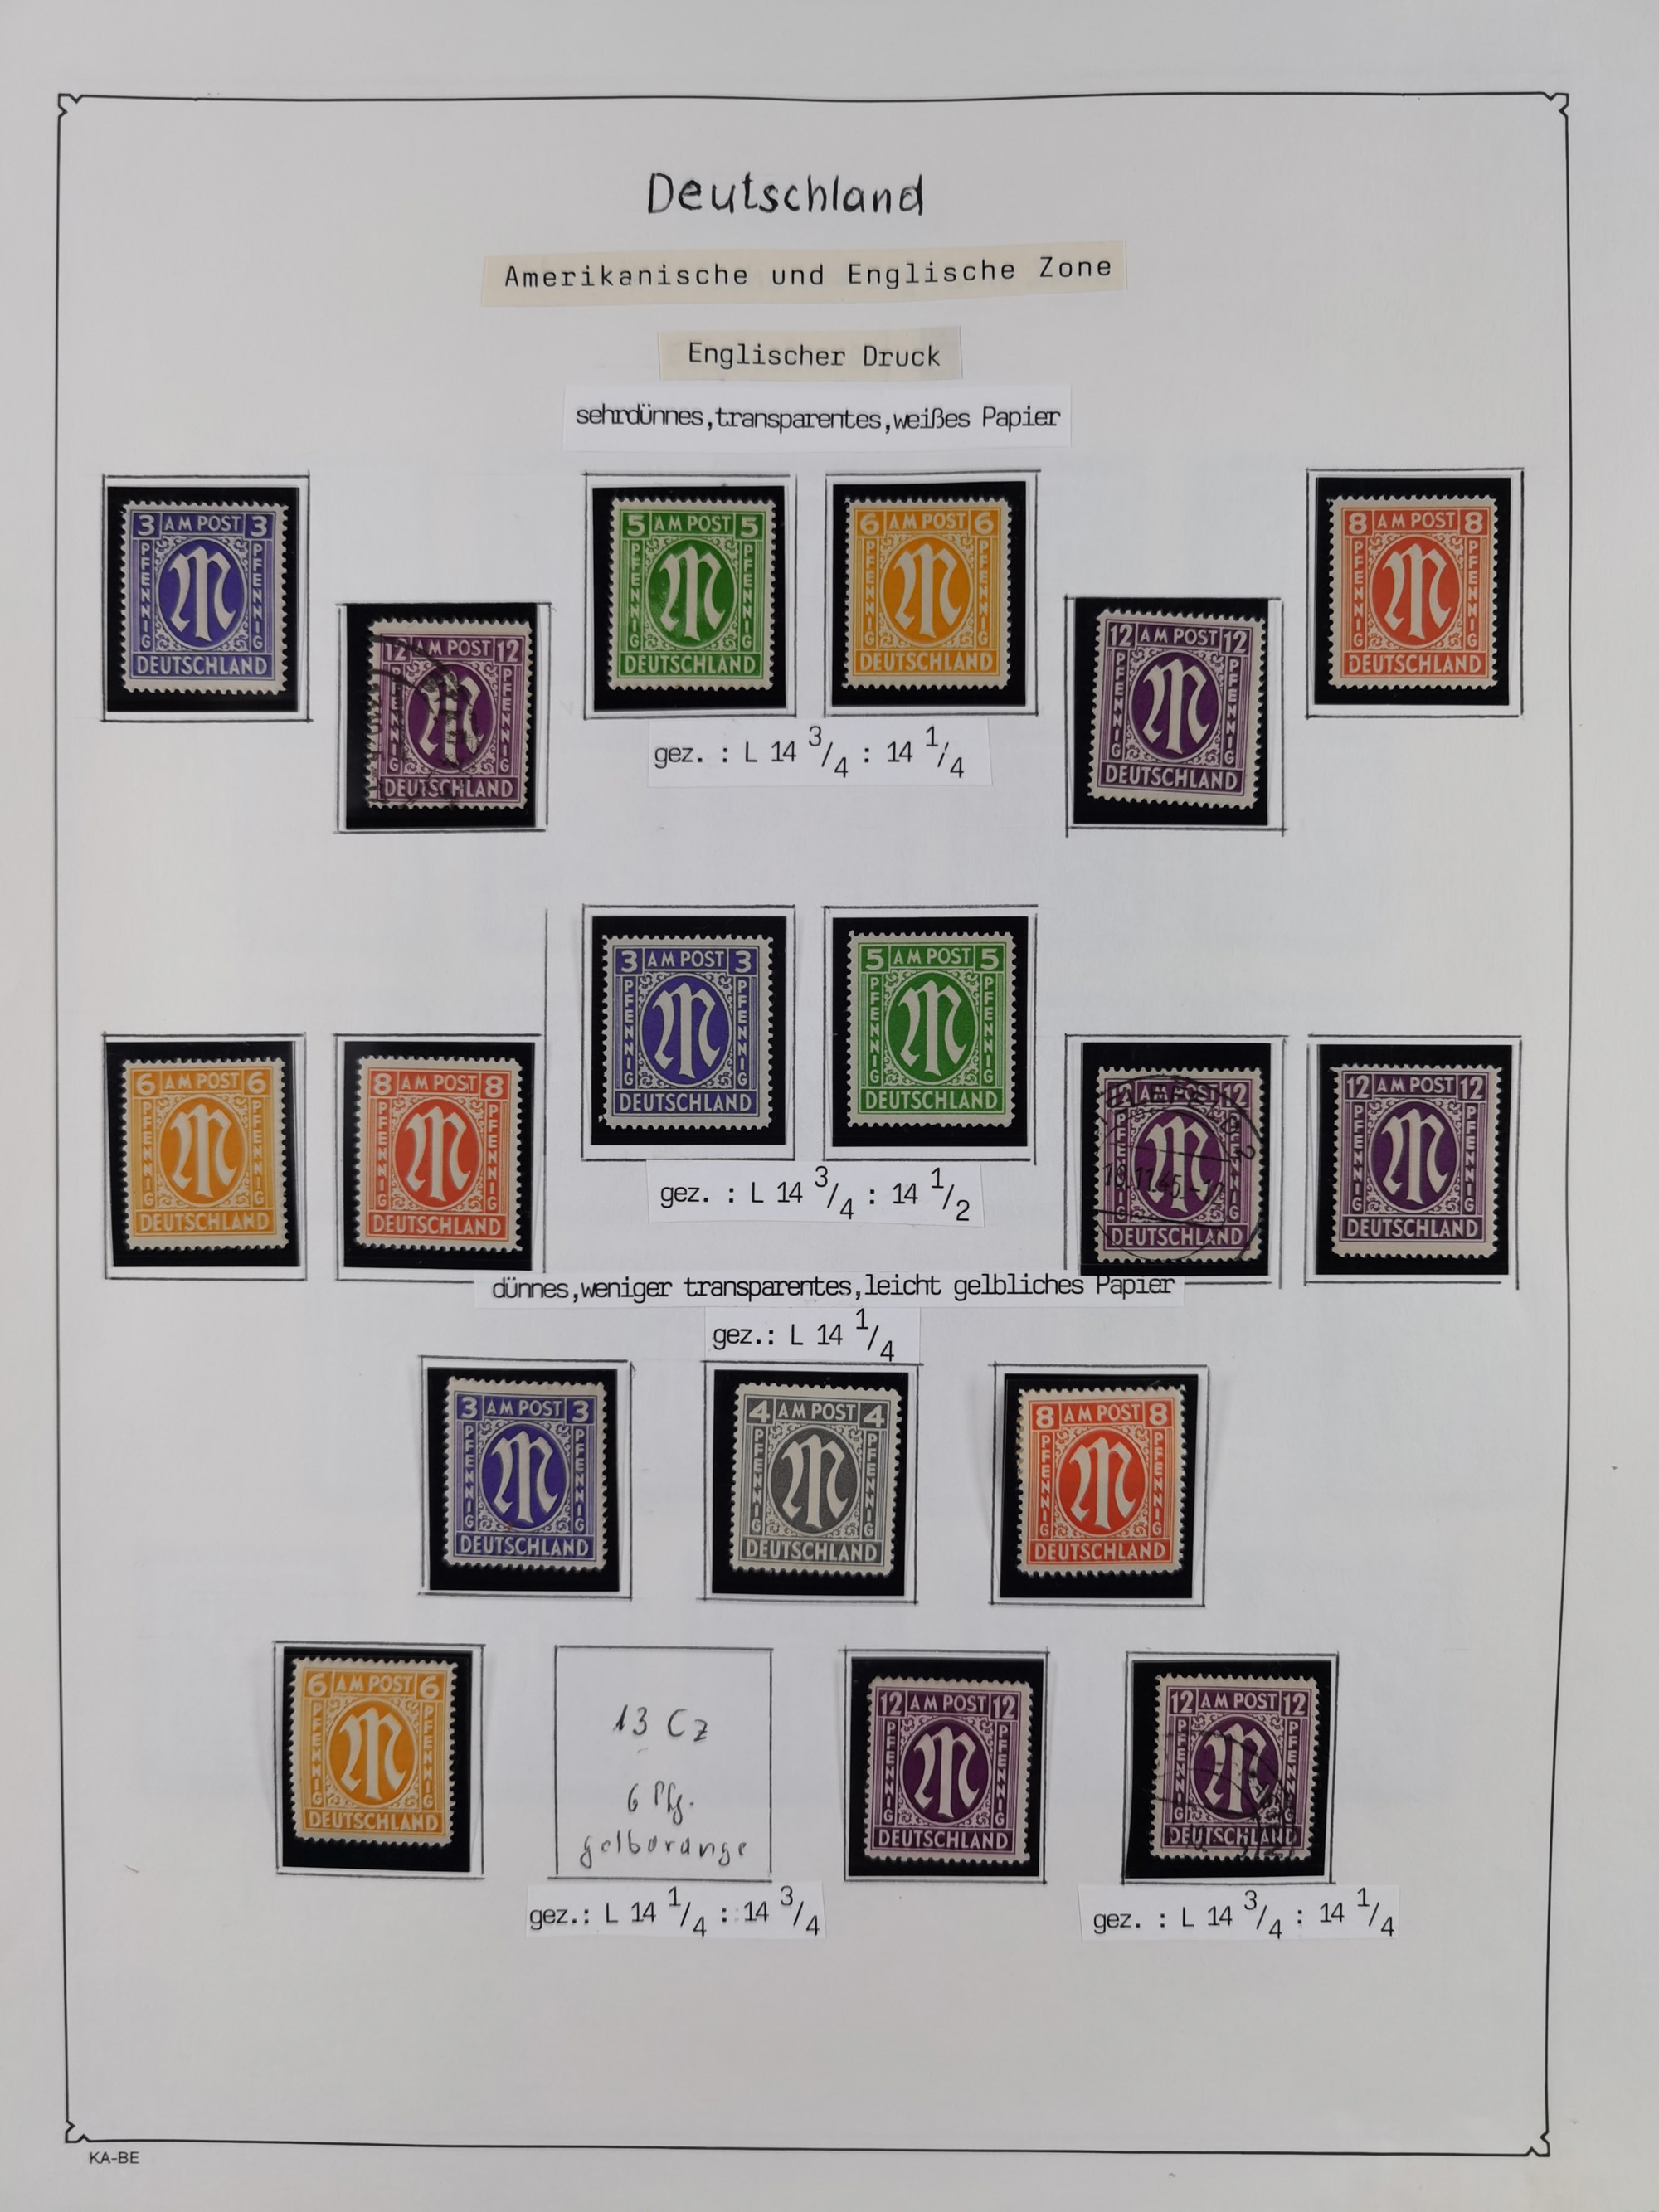 Deutschland
Amerikanische und Englische Zone
Englischer Druck
sehrdünnes,transparentes,weißes Papier
3 AM POST 3
PFENNIG PFENNIG
DEUTSCHLAND
5 AM POST 5
PFENNIG PFENNIG
DEUTSCHLAND
6 AM POST 6
PFENNIG PFENNIG
DEUTSCHLAND
8 AM POST 8
PFENNIG PFENNIG
DEUTSCHLAND
12 AM POST 12
PFENNIG PFENNIG
DEUTSCHLAND
12 AM POST 12
PFENNIG PFENNIG
DEUTSCHLAND
gez. : L 14 3/4 : 14 1/4
3 AM POST 3
PFENNIG PFENNIG
DEUTSCHLAND
5 AM POST 5
PFENNIG PFENNIG
DEUTSCHLAND
6 AM POST 6
PFENNIG PFENNIG
DEUTSCHLAND
8 AM POST 8
PFENNIG PFENNIG
DEUTSCHLAND
12 AM POST 12
PFENNIG PFENNIG
DEUTSCHLAND
12 AM POST 12
PFENNIG PFENNIG
DEUTSCHLAND
gez. : L 14 3/4 : 14 1/2
dünnes,weniger transparentes,leicht gelbliches Papier
gez.: L 14 1/4
3 AM POST 3
PFENNIG PFENNIG
DEUTSCHLAND
4 AM POST 4
PFENNIG PFENNIG
DEUTSCHLAND
8 AM POST 8
PFENNIG PFENNIG
DEUTSCHLAND
6 AM POST 6
PFENNIG PFENNIG
DEUTSCHLAND
13 Cz
6 Pfg.
gelborange
12 AM POST 12
PFENNIG PFENNIG
DEUTSCHLAND
12 AM POST 12
PFENNIG PFENNIG
DEUTSCHLAND
gez.: L 14 1/4 : 14 3/4
gez. : L 14 3/4 : 14 1/4
KA-BE